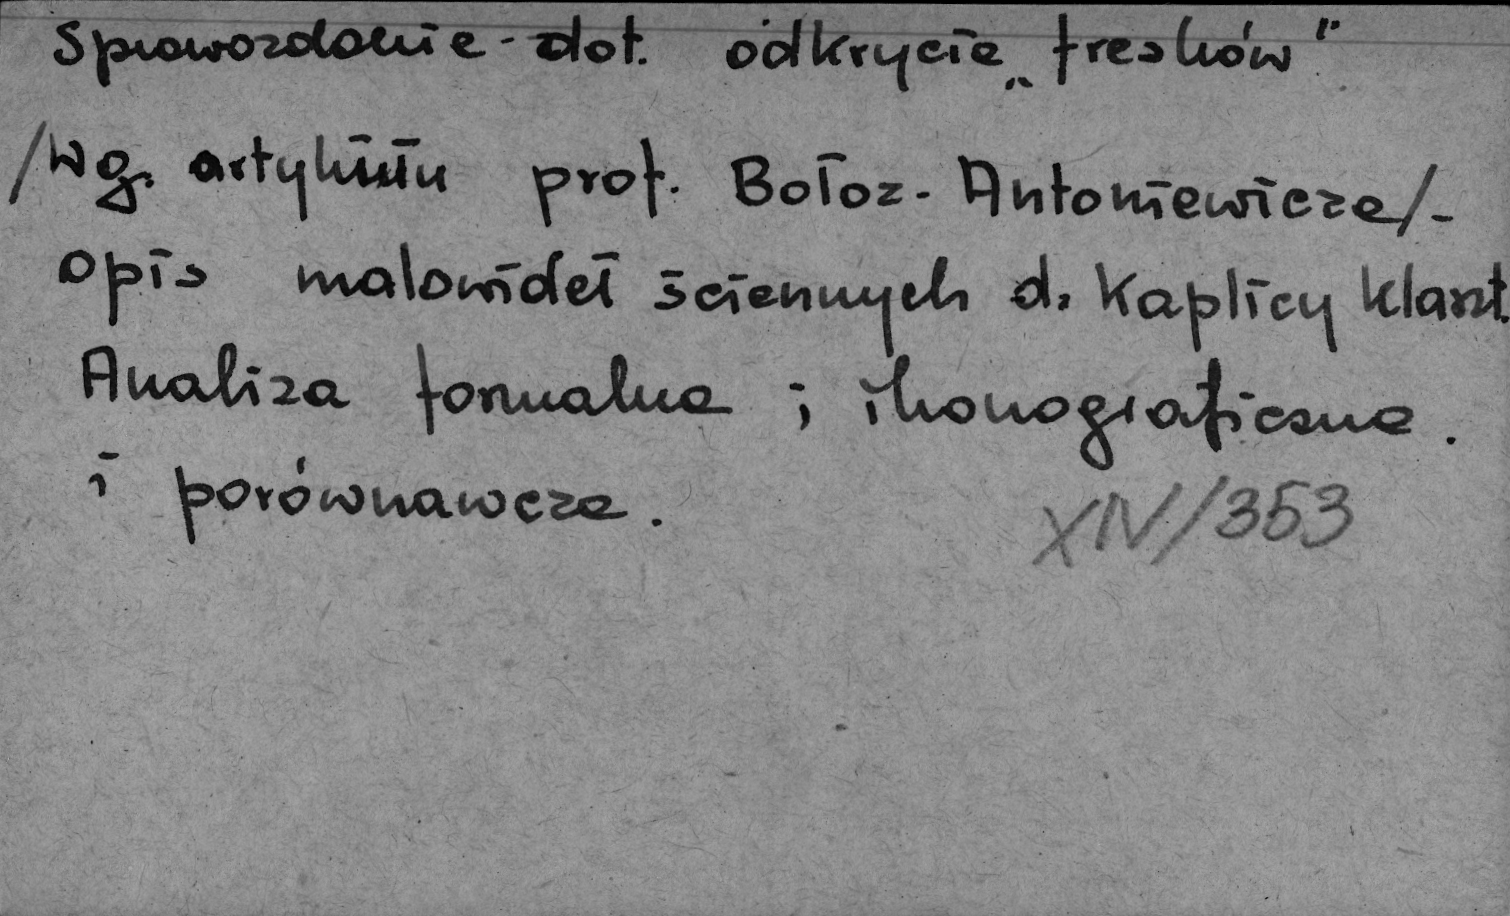 Sprawozdanie - dot. odkrycia „fresków"
/Wg. artykułu prof. Bołoz-Antoniewicza/-
opis malowideł ściennych d. Kaplicy klaszt.
Analiza formalna i ikonograficzna.
i porównawcza.
XIV/353